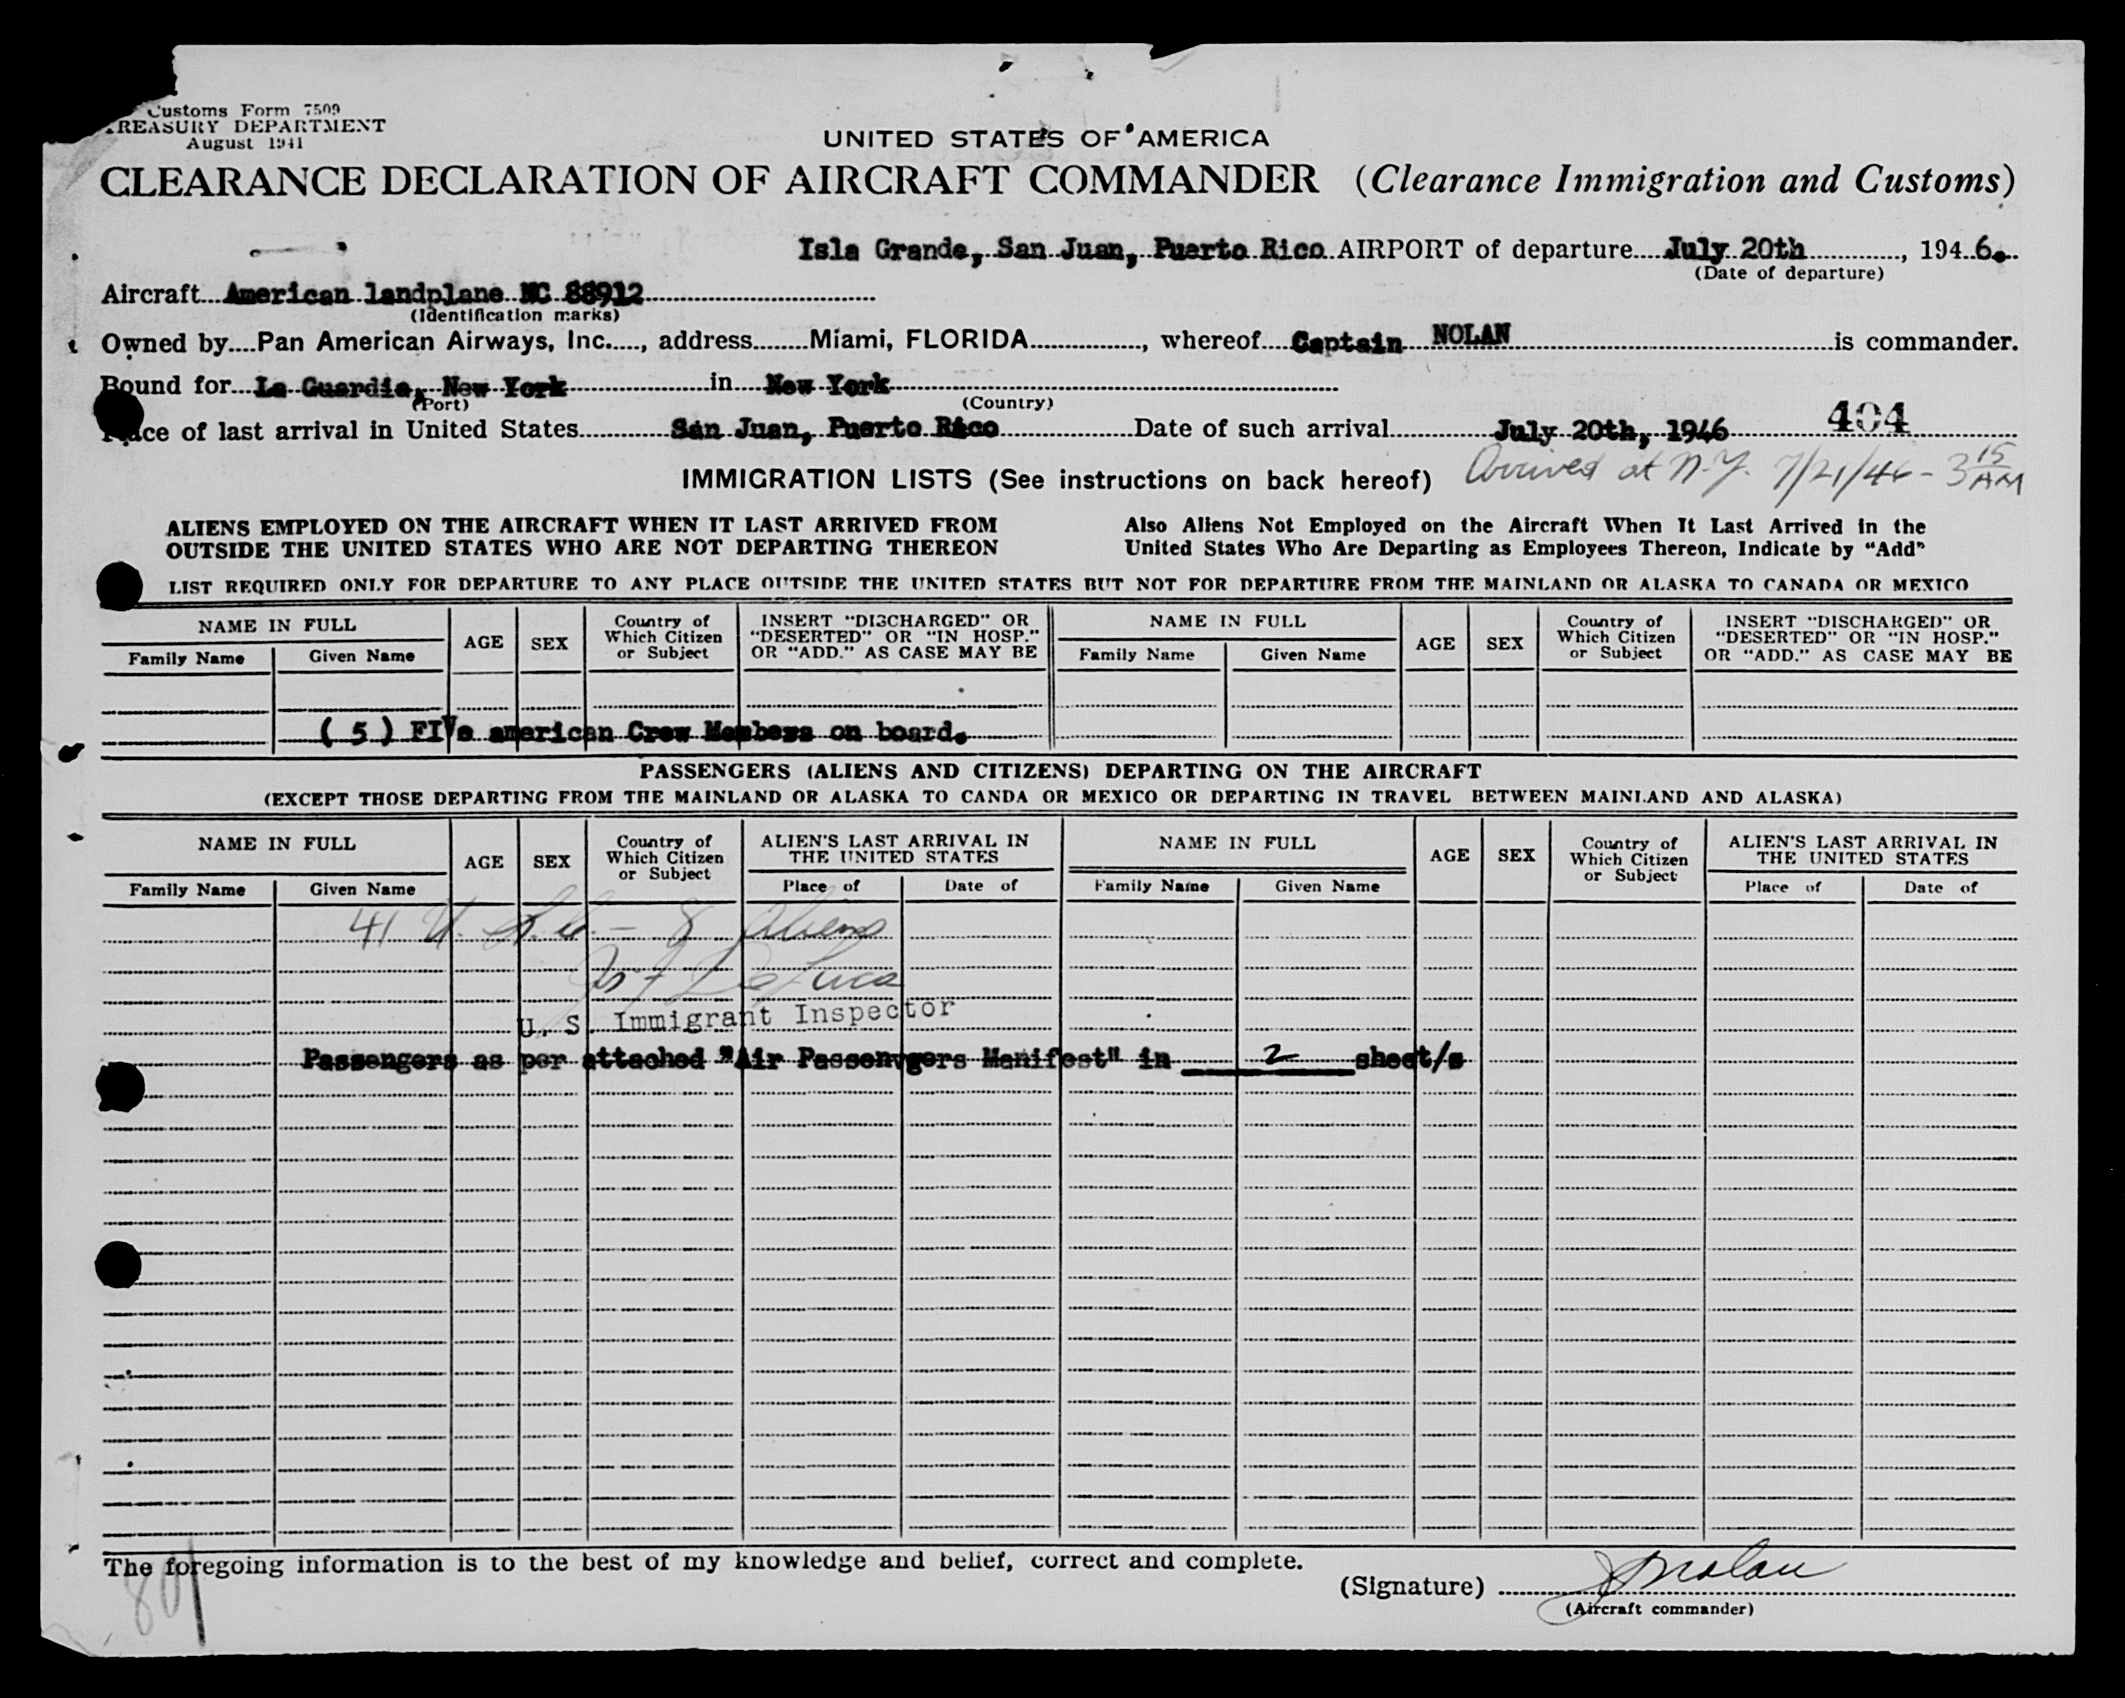 Customs Form 7509
TREASURY DEPARTMENT
August 1941
UNITED STATES OF AMERICA
CLEARANCE DECLARATION OF AIRCRAFT COMMANDER (Clearance Immigration and Customs)
Isla Grande, San Juan, Puerto Rico AIRPORT of departure July 20th, 1946.
(Date of departure)
Aircraft American landplane NC 88912
(Identification marks)
Owned by Pan American Airways, Inc., address Miami, FLORIDA, whereof Captain NOLAN is commander.
Bound for La Guardia, New York in New York
(Port) (Country)
Place of last arrival in United States San Juan, Puerto Rico Date of such arrival July 20th, 1946 404
IMMIGRATION LISTS (See instructions on back hereof) Arrived at N.Y. 7/21/46 - 3 15 AM
ALIENS EMPLOYED ON THE AIRCRAFT WHEN IT LAST ARRIVED FROM
OUTSIDE THE UNITED STATES WHO ARE NOT DEPARTING THEREON
Also Aliens Not Employed on the Aircraft When It Last Arrived in the
United States Who Are Departing as Employees Thereon, Indicate by "Add"
LIST REQUIRED ONLY FOR DEPARTURE TO ANY PLACE OUTSIDE THE UNITED STATES BUT NOT FOR DEPARTURE FROM THE MAINLAND OR ALASKA TO CANADA OR MEXICO
NAME IN FULL
Family Name Given Name
AGE
SEX
Country of
Which Citizen
or Subject
INSERT "DISCHARGED" OR
"DESERTED" OR "IN HOSP."
OR "ADD." AS CASE MAY BE
NAME IN FULL
Family Name Given Name
AGE
SEX
Country of
Which Citizen
or Subject
INSERT "DISCHARGED" OR
"DESERTED" OR "IN HOSP."
OR "ADD." AS CASE MAY BE
( 5 ) FIVe american Crew Members on board.
PASSENGERS (ALIENS AND CITIZENS) DEPARTING ON THE AIRCRAFT
(EXCEPT THOSE DEPARTING FROM THE MAINLAND OR ALASKA TO CANDA OR MEXICO OR DEPARTING IN TRAVEL BETWEEN MAINLAND AND ALASKA)
NAME IN FULL
Family Name Given Name
AGE
SEX
Country of
Which Citizen
or Subject
ALIEN'S LAST ARRIVAL IN
THE UNITED STATES
Place of Date of
NAME IN FULL
Family Name Given Name
AGE
SEX
Country of
Which Citizen
or Subject
ALIEN'S LAST ARRIVAL IN
THE UNITED STATES
Place of Date of
41 U.S.C. - 8 Aliens
DeLuca
U. S. Immigrant Inspector
Passengers as per attached "Air Passenvgers Manifest" in 2 sheet/s
The foregoing information is to the best of my knowledge and belief, correct and complete.
(Signature) J Nolan
(Aircraft commander)
801